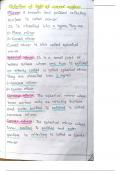 Reflection of light at curved surfaces
Mirror: A smooth and polished reflecting
surface is called mirror.
It is classified into 2 types. They are
1) Plane mirror
2) Curved mirror
Curved mirror is also called spherical
mirror.
Spherical mirror: It is a small part of
sphere whose one side is polished
is called spherical mirror.
They are classified into 2 types
1) Concave mirror
2) Convex mirror
Concave mirror: The spherical mirror whose
surface is reflecting
is called
concave mirror.
Convex mirror: The spherical mirror whose
inner surface is polished and outer
surface is reflecting is called
convex mirror.